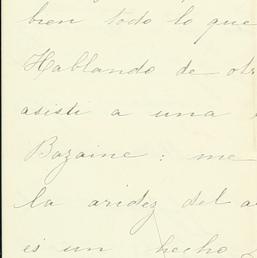 bien todo lo que
Hablando de otr
asisti a una
Bazaine: me
la aridez del a
es un hecho